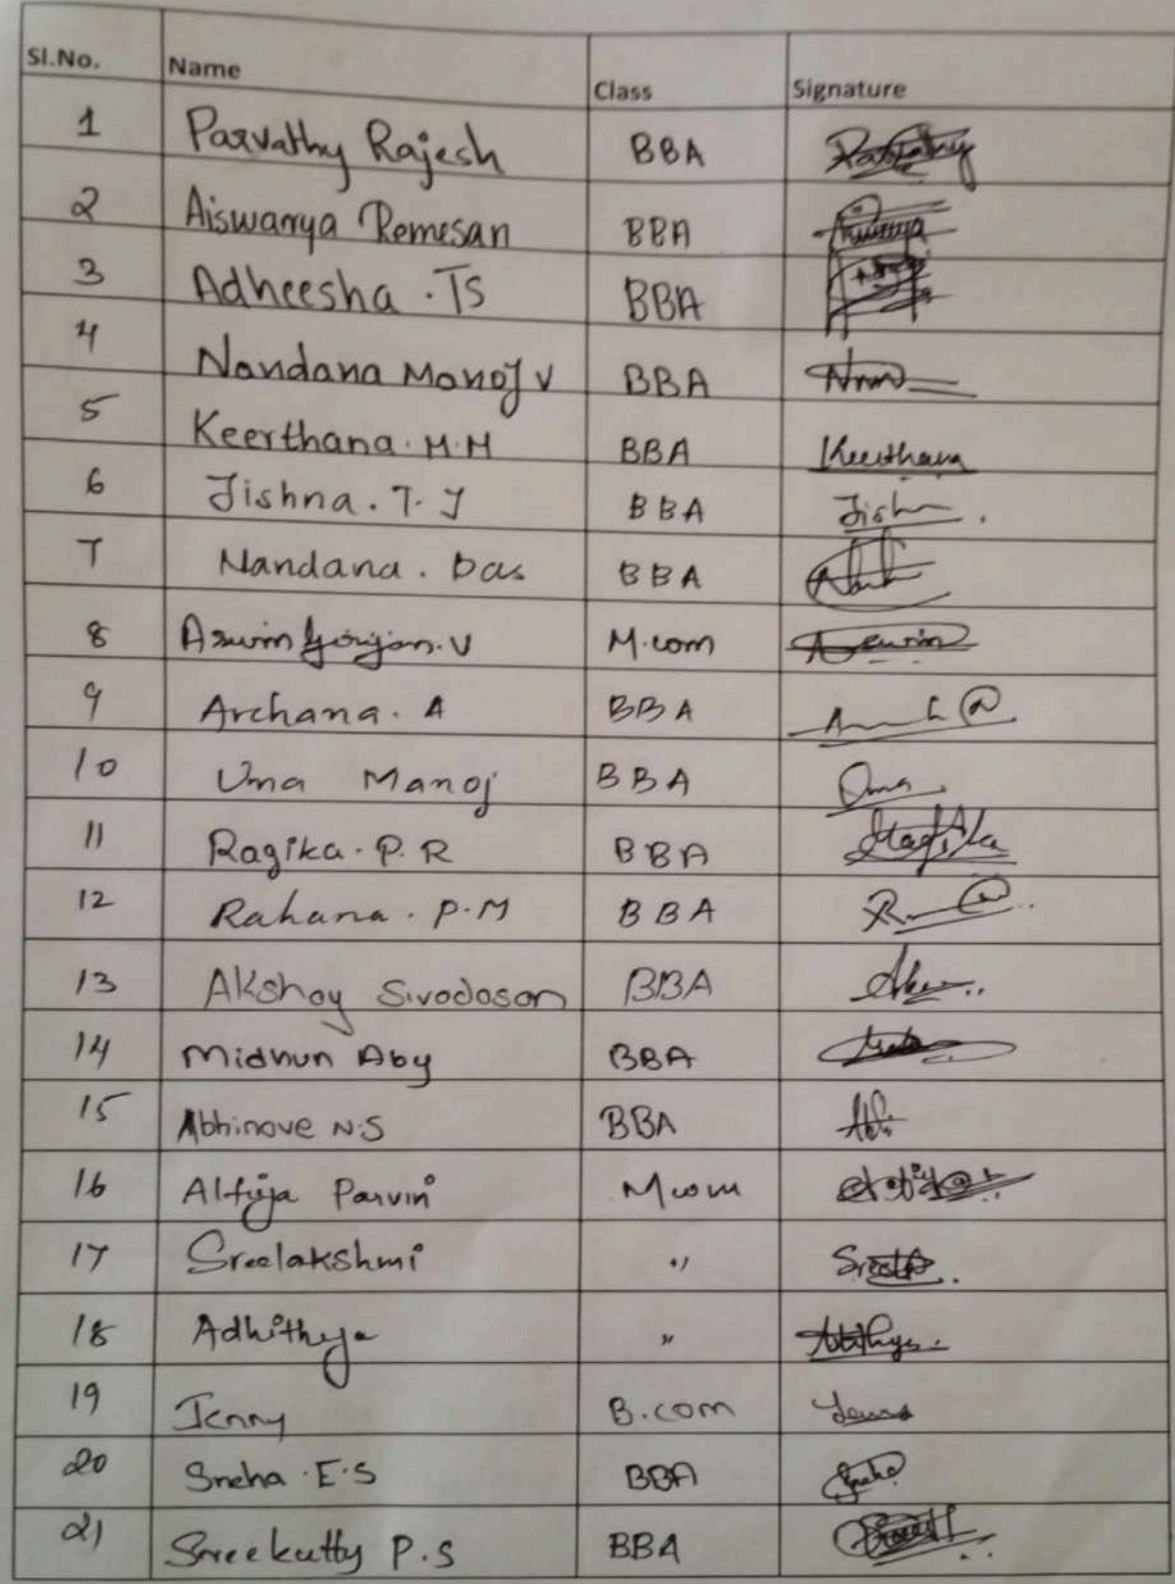 Sl.No. Name Class Signature
1 Parvathy Rajesh BBA Parvathy
2 Aiswarya Remesan BBA
3 Adheesha . TS BBA
4 Nandana Manoj V BBA
5 Keerthana . M.M BBA Keerthana
6 Jishna . T. J BBA Jish
7 Nandana . Das BBA
8 Aswin V M.com Aswin
9 Archana . A BBA
10 Uma Manoj BBA Uma
11 Ragika . P. R BBA Ragika
12 Rahana . P.M BBA
13 Akshay Sivadasan BBA
14 Midhun Aby BBA
15 Abhinave N.S BBA Abhi
16 Alfija Parvin Mcom
17 Sreelakshmi " Sree
18 Adhithya "
19 Jenny B.com
20 Sneha . E.S BBA Sneha
21 Sreekutty P.S BBA